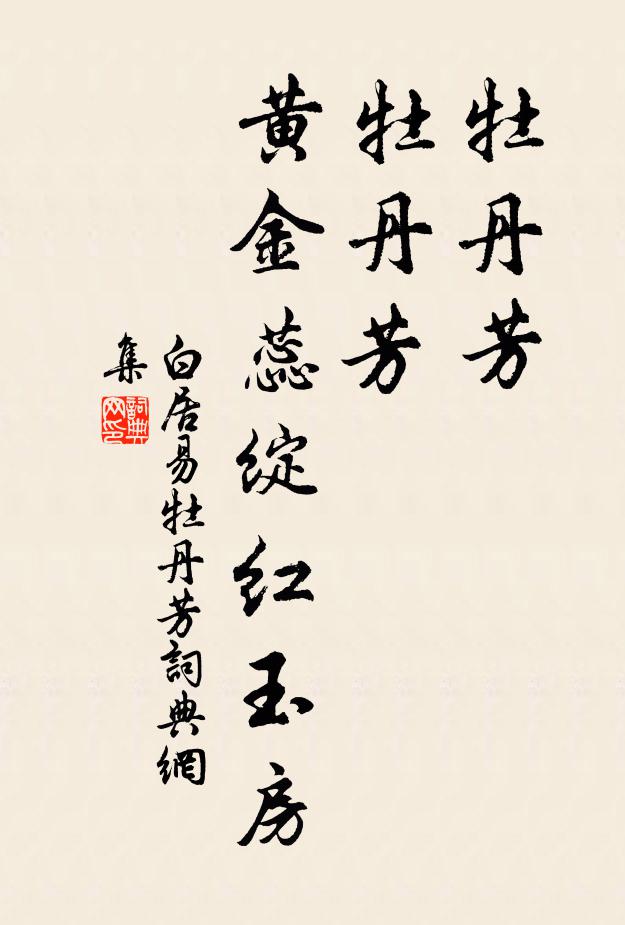 牡丹芳
牡丹芳
黄金蕊綻红玉房
白居易牡丹芳詞典網
集
詞典
网印